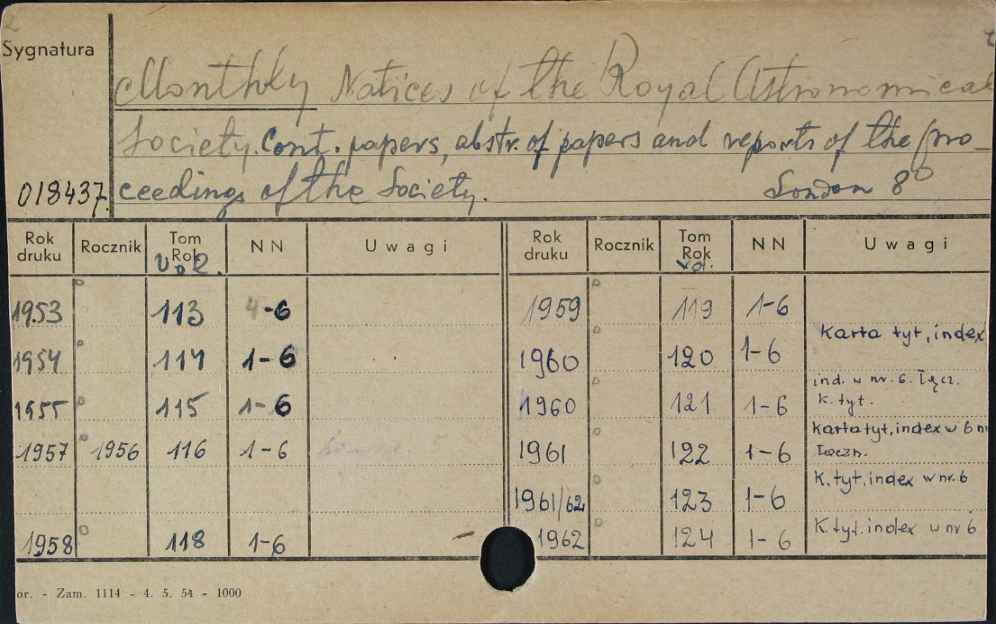 Sygnatura
Monthly Notices of the Royal Astronomical
Society. Cont. papers, abstr. of papers and reports of the pro-
018437. ceedings of the Society. London 8°
Rok druku Rocznik Tom Rok vol. NN Uwagi Rok druku Rocznik Tom Rok vol. NN Uwagi
1953 113 4-6 1959 119 1-6
1954 114 1-6 1960 120 1-6 Karta tyt, index
1955 115 1-6 1960 121 1-6 ind. w nr. 6. łącz. k. tyt.
1957 1956 116 1-6 1961 122 1-6 Karta tyt, index w 6 nr łączn.
1961/62 123 1-6 K. tyt, index w nr. 6
1958 118 1-6 1962 124 1-6 K. tyt. index w nr 6
or. - Zam. 1114 - 4. 5. 54 - 1000